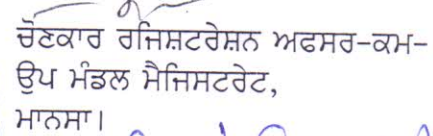 ਚੋਣਕਾਰ ਰਜਿਸ਼ਟਰੇਸ਼ਨ ਅਫਸਰ-ਕਮ-
ਉਪ ਮੰਡਲ ਮੈਜਿਸਟਰੇਟ,
ਮਾਨਸਾ।